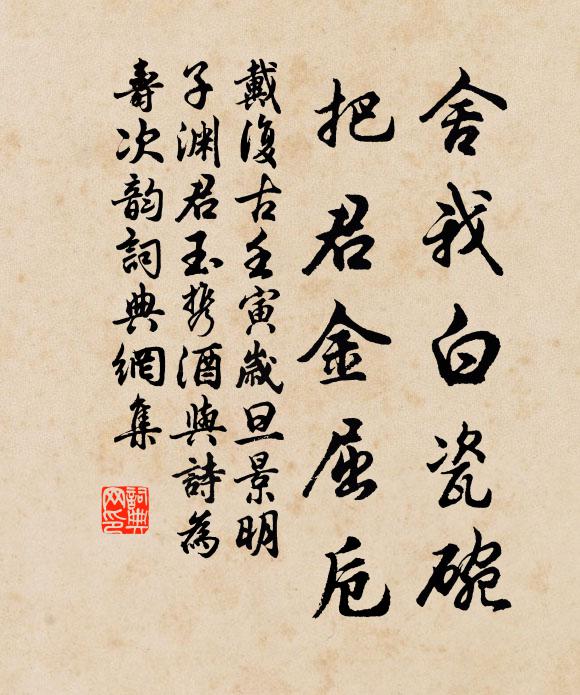 舍我白瓷碗
把君金屈卮
戴復古壬寅歲旦景明
子渊君玉携酒與詩為
壽次韵詞典網集
詞典
网印